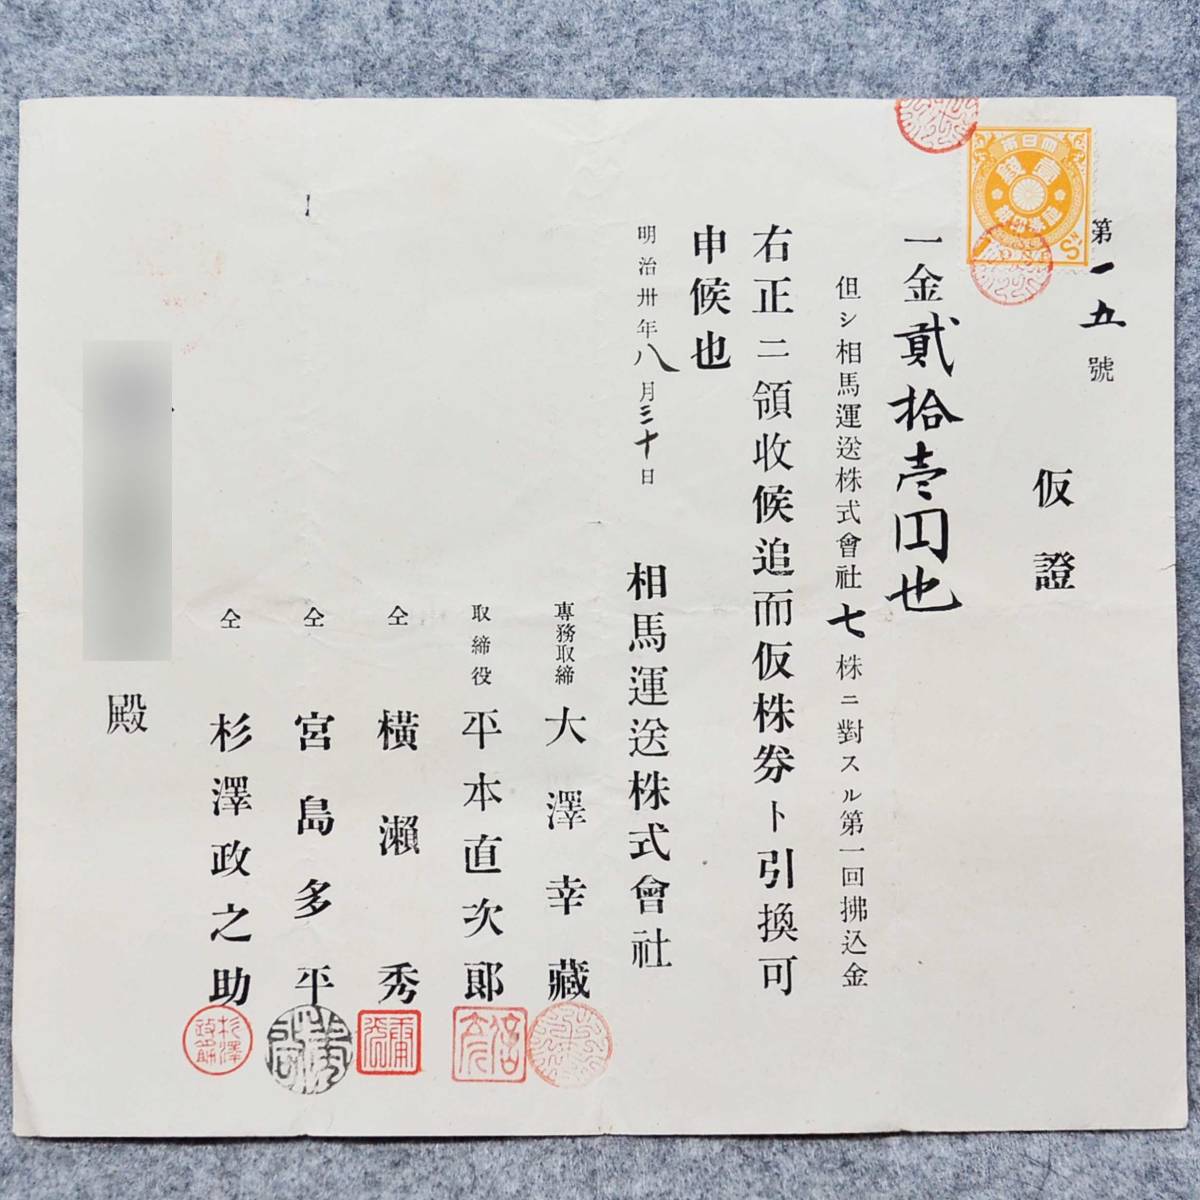 第一五號
仮證
一金貳拾壱円也
但シ相馬運送株式會社七株ニ對スル第一回拂込金
右正ニ領收候追而仮株劵ト引換可
申候也
明治卅年八月三十日
相馬運送株式會社
専務取締 大澤幸藏
取締役 平本直次郎
仝 橫瀬秀
仝 宮島多平
仝 杉澤政之助
殿
大日本帝國
壹錢
1 Sⁿ